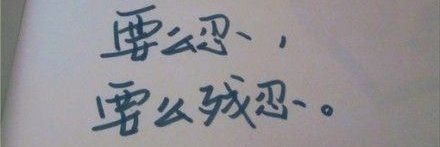 要么忍、,
要么残忍。